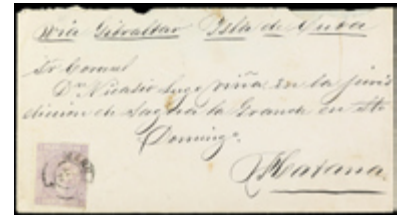 Via Gibraltar Isla de Cuba
Sr Coronel
Dn Nicasio Lugo Viña En la juris
diccion de Sagua la Grande en Sto
Domingo.
Habana.